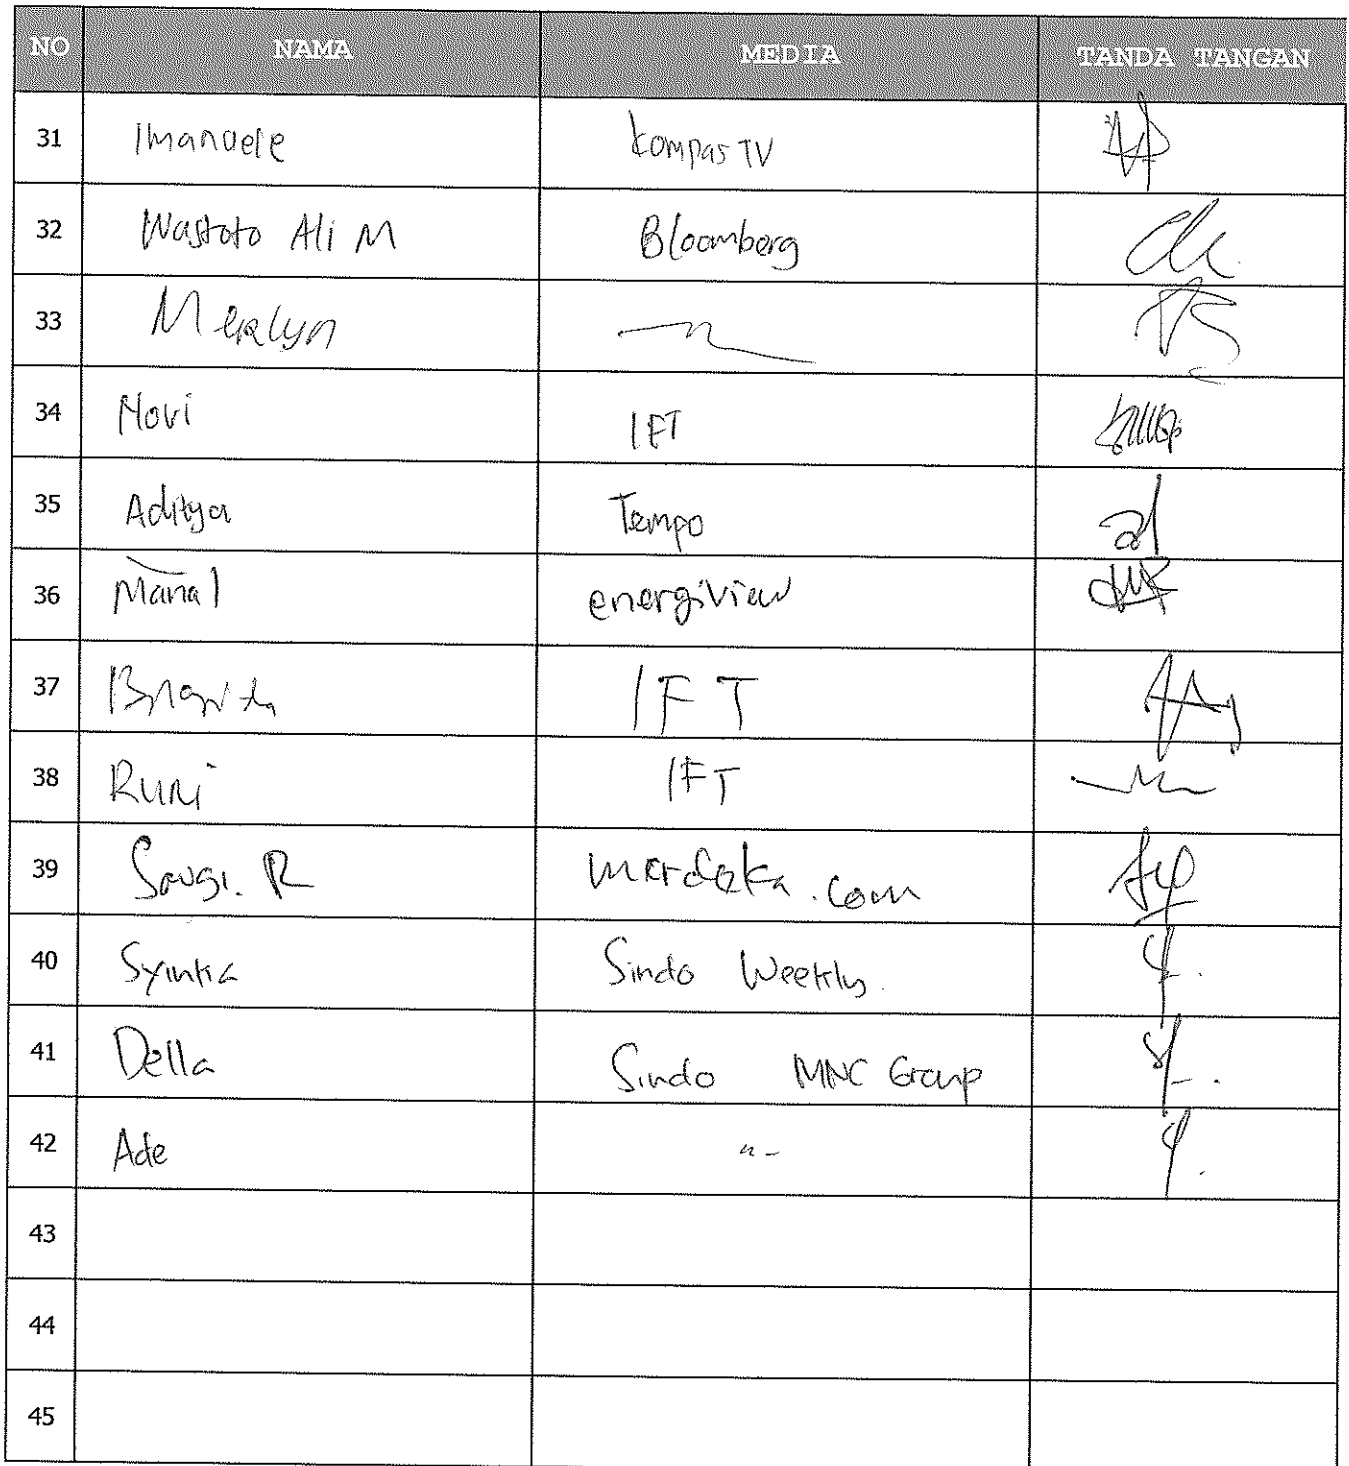 NO NAMA MEDIA TANDA TANGAN
31 Imanuele Kompas TV
32 Wastoto Ali M Bloomberg
33 Merlyn
34 Novi IFT
35 Aditya Tempo
36 Manal energiView
37 IFT
38 Runi IFT
39 R merdeka.com
40 Syintia Sindo Weekly.
41 Della Sindo MNC Group
42 Ade
43
44
45